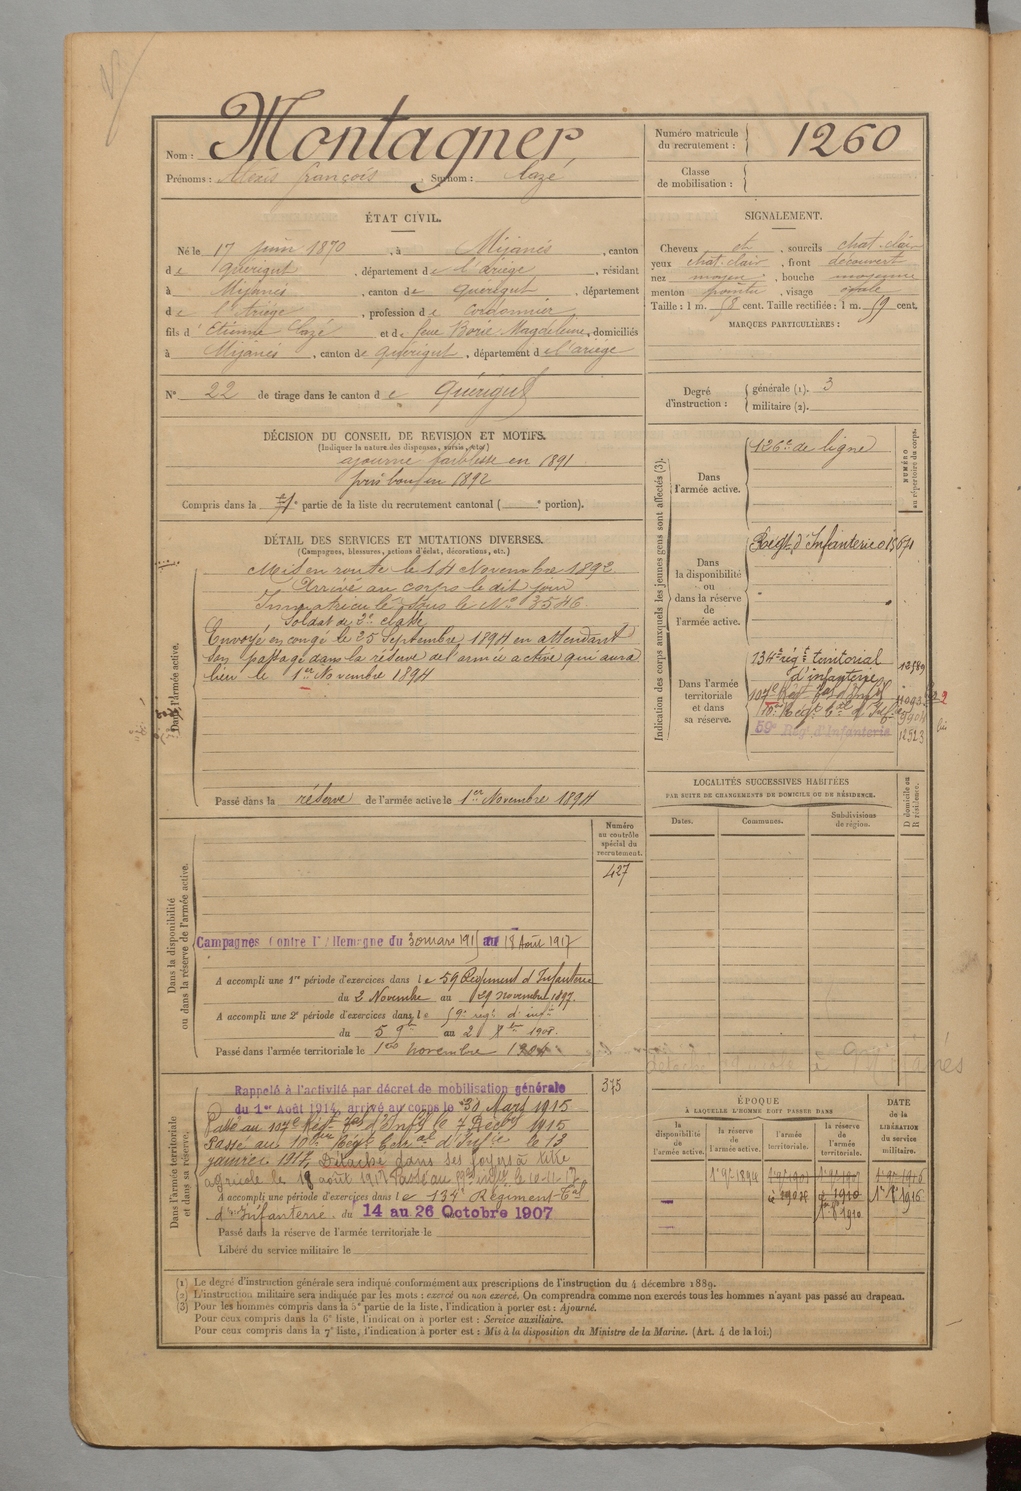 Nom : Montagner
Prénoms : Alexis françois , Surnom : Cazé
Numéro matricule
du recrutement :
1260
Classe
de mobilisation :
ÉTAT CIVIL.
Né le 17 juin 1870 , à Mijanès , canton
de Quérigut , département de l'ariège , résidant
à Mijanès , canton de Quérigut , département
de l'Ariège , profession de Cordonnier
fils d'Etienne Cazé et de feue Magdeleine , domiciliés
à Mijanès , canton de Quérigut , département de l'ariège
N° 22 de tirage dans le canton de Quérigut
SIGNALEMENT.
Cheveux ch , sourcils chat. clair
yeux chat. clair , front découvert
nez moyen , bouche moyenne
menton pointu , visage ovale
Taille : 1 m. 58 cent. Taille rectifiée : 1 m. 59 cent.
MARQUES PARTICULIÈRES :
Degré
d'instruction :
générale (1). 3
militaire (2).
DÉCISION DU CONSEIL DE REVISION ET MOTIFS.
(Indiquer la nature des dispenses, sursis, etc.)
ajourné faiblesse en 1891
pris bon en 1892
Compris dans la partie de la liste du recrutement cantonal ( ° portion).
DÉTAIL DES SERVICES ET MUTATIONS DIVERSES.
(Campagnes, blessures, actions d'éclat, décorations, etc.)
Dans l'armée active.
Mis en route le 14 Novembre 1892.
Arrivé au corps le dit jour
Immatriculé sous le N° 3546.
Soldat de 2e classe
Envoyé en congé le 25 Septembre 1894 en attendant
son passage dans la réserve de l'armée active qui aura
lieu le 1er Novembre 1894
Passé dans la réserve de l'armée active le 1er Novembre 1894
Indication des corps auxquels les jeunes gens sont affectés (3).
NUMÉRO
au répertoire du corps.
Dans
l'armée active.
126e de ligne
Dans
la disponibilité
ou
dans la réserve
de
l'armée active.
Régt d'Infanterie
Dans l'armée
territoriale
et dans
sa réserve.
134e régt territorial
d'infanterie
107e Régt
59e Rég. d'Infanterie
12523
LOCALITÉS SUCCESSIVES HABITÉES
PAR SUITE DE CHANGEMENTS DE DOMICILE OU DE RÉSIDENCE.
Dates.
Communes.
Subdivisions
de région.
D domicile ou
R résidence.
Dans la disponibilité
ou dans la réserve de l'armée active.
Numéro
au contrôle
spécial du
recrutement.
427
Campagnes Contre l'Allemagne du 30 mars 1915 au 18 Août 1917
A accompli une 1re période d'exercices dans le 59 Régiment d'Infanterie
du 2 Novembre au 29 novembre 1897.
A accompli une 2e période d'exercices dans le 59e régt d'infie
du 5 au 2
Passé dans l'armée territoriale le 1er novembre 1904
Dans l'armée territoriale
et dans sa réserve.
375
Rappelé à l'activité par décret de mobilisation générale
du 1er Août 1914, arrivé au corps le 30 Mars 1915
Passé au 107e Régt d'Infie le 7 Décbre 1915
Passé au Régt d'Infie le 13
janvier 1917, Détaché dans ses foyers à titre
agricole le 18 août 1917 Passé au
A accompli une période d'exercices dans le 134e Régiment
d'Infanterie du 14 au 26 Octobre 1907
Passé dans la réserve de l'armée territoriale le
Libéré du service militaire le
ÉPOQUE
À LAQUELLE L'HOMME DOIT PASSER DANS
la
disponibilité
de
l'armée active.
la réserve
de
l'armée active.
l'armée
territoriale.
la réserve
de
l'armée
territoriale.
DATE
de la
LIBÉRATION
du service
militaire.
(1) Le degré d'instruction générale sera indiqué conformément aux prescriptions de l'instruction du 4 décembre 1889.
(2) L'instruction militaire sera indiquée par les mots : exercé ou non exercé. On comprendra comme non exercés tous les hommes n'ayant pas passé au drapeau.
(3) Pour les hommes compris dans la 5e partie de la liste, l'indication à porter est : Ajourné.
Pour ceux compris dans la 6e liste, l'indication à porter est : Service auxiliaire.
Pour ceux compris dans la 7e liste, l'indication à porter est : Mis à la disposition du Ministre de la Marine. (Art. 4 de la loi.)